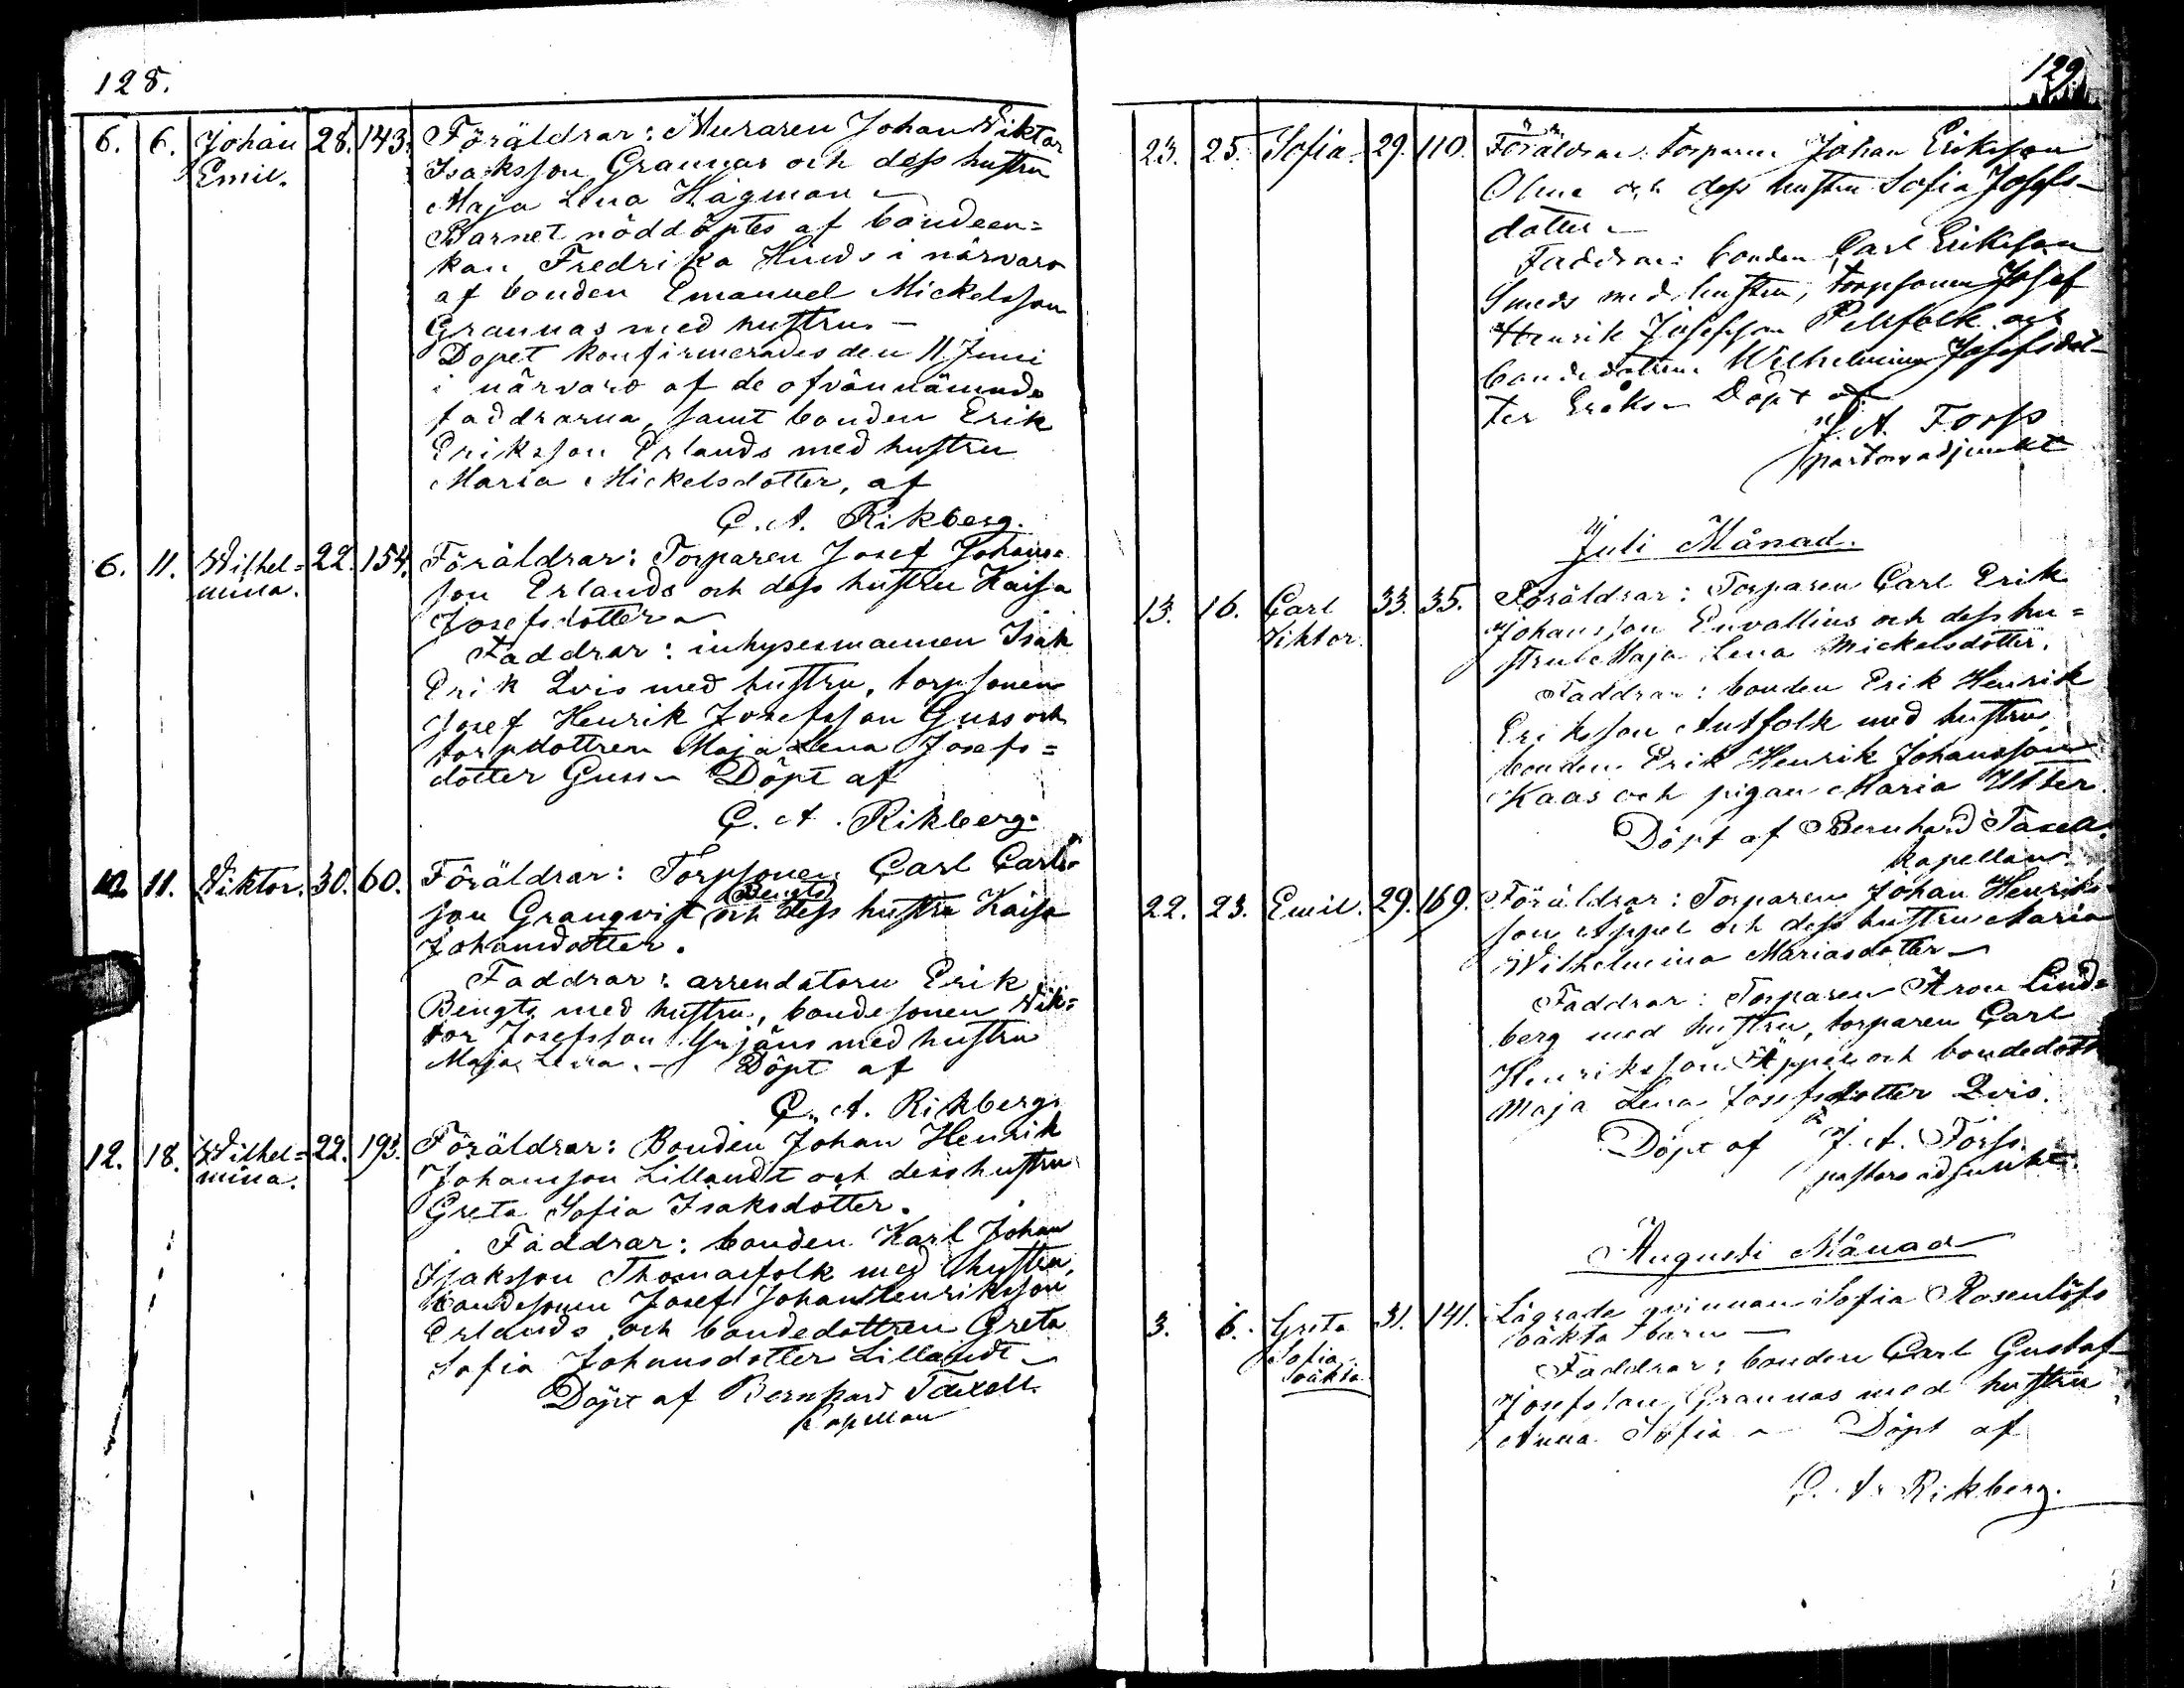 128.
6. 6. Johan 28. 143. Föräldrar: Muraren Johan Viktor
Emil. Isaksson Grannas och dess hustru
Maja Lena Hägman
Barnet nöddöptes af bondeen=
kan Fredrika Hinds i närvaro
af bonden Emanuel Mickelsson
Grannas med hustru –
Dopet konfirmerades den 11 Juni
i närvaro af de ofvannämnde
faddrarna, samt bonden Erik
Eriksson Erlands med hustru
Maria Mickelsdotter, af
C. A. Rikberg.
6. 11. Wilhel= 22. 154. Föräldrar: Torparen Josef Johans=
mina. son Erlands och dess hustru Kaisa
Josefsdotter
Faddrar: inhysesmannen Isak
Erik Qvis med hustru, torpsonen
Josef Henrik Josefsson Guss och
torpdottren Maja Lena Josefs=
dotter Guss – Döpt af
C. A. Rikberg.
10. 11. Viktor. 30. 60. Föräldrar: Torpsonen Carl Carls=
Bengts
son Granqvist och dess hustru Kaisa
Johansdotter.
Faddrar: arrendatorn Erik
Bengts med hustru, bondesonen Vik=
tor Josefsson Örjäns med hustru
Maja Lena. – Döpt af
C. A. Rikberg.
12. 18. Wilhel= 22. 193. Föräldrar: Bonden Johan Henrik
mina. Johansson Lillandt och dess hustru
Greta Sofia Isaksdotter.
Faddrar: bonden Karl Johan
Isaksson Thomasfolk med hustru,
bondesonen Josef Johan Henriksson
Erlands och bondedottren Greta
Sofia Johansdotter Lillandt –
Döpt af Bernhard Taxell.
kapellan
129.
23. 25. Sofia. 29. 110. Föräldrar: torparen Johan Eriksson
Olme och dess hustru Sofia Josefs-
dotter –
Faddrar: bonden Carl Eriksson
Smeds med hustru, torpsonen Josef
Henrik Josefsson Pellfolk och
bondedottren Wilhelmina Josefsdot-
ter Eråks – Döpt af
J. A. Forss
pastorsadjunkt
Juli Månad.
13. 16. Carl 33. 35. Föräldrar: Torparen Carl Erik
Viktor. Johansson Envallius och dess hu=
stru Maja Lena Mickelsdotter.
Faddrar: bonden Erik Henrik
Eriksson Antfolk med hustru,
bonden Erik Henrik Johansson
Kaas och pigan Maria Utter.
Döpt af Bernhard Taxell.
kapellan.
22. 23. Emil. 29. 169. Föräldrar: Torparen Johan Henriks-
son Äppel och dess hustru Maria
Wilhelmina Mariasdotter –
Faddrar: Torparen Aron Lind=
berg med hustru, torparen Carl
Henriksson Äppel och bondedott
Maja Lena Josefsdotter Qvis.
Döpt af J. A. Forss.
pastorsadjunkt.
Augusti Månad
3. 6. Greta 31. 141. Lägrade qvinnan Sofia Rosenlöfs
Sofia oäkta barn –
oäkta Faddrar: bonden Carl Gustaf
Josefsson Grannas med hustru
Anna Sofia – Döpt af
C. A. Rikberg.